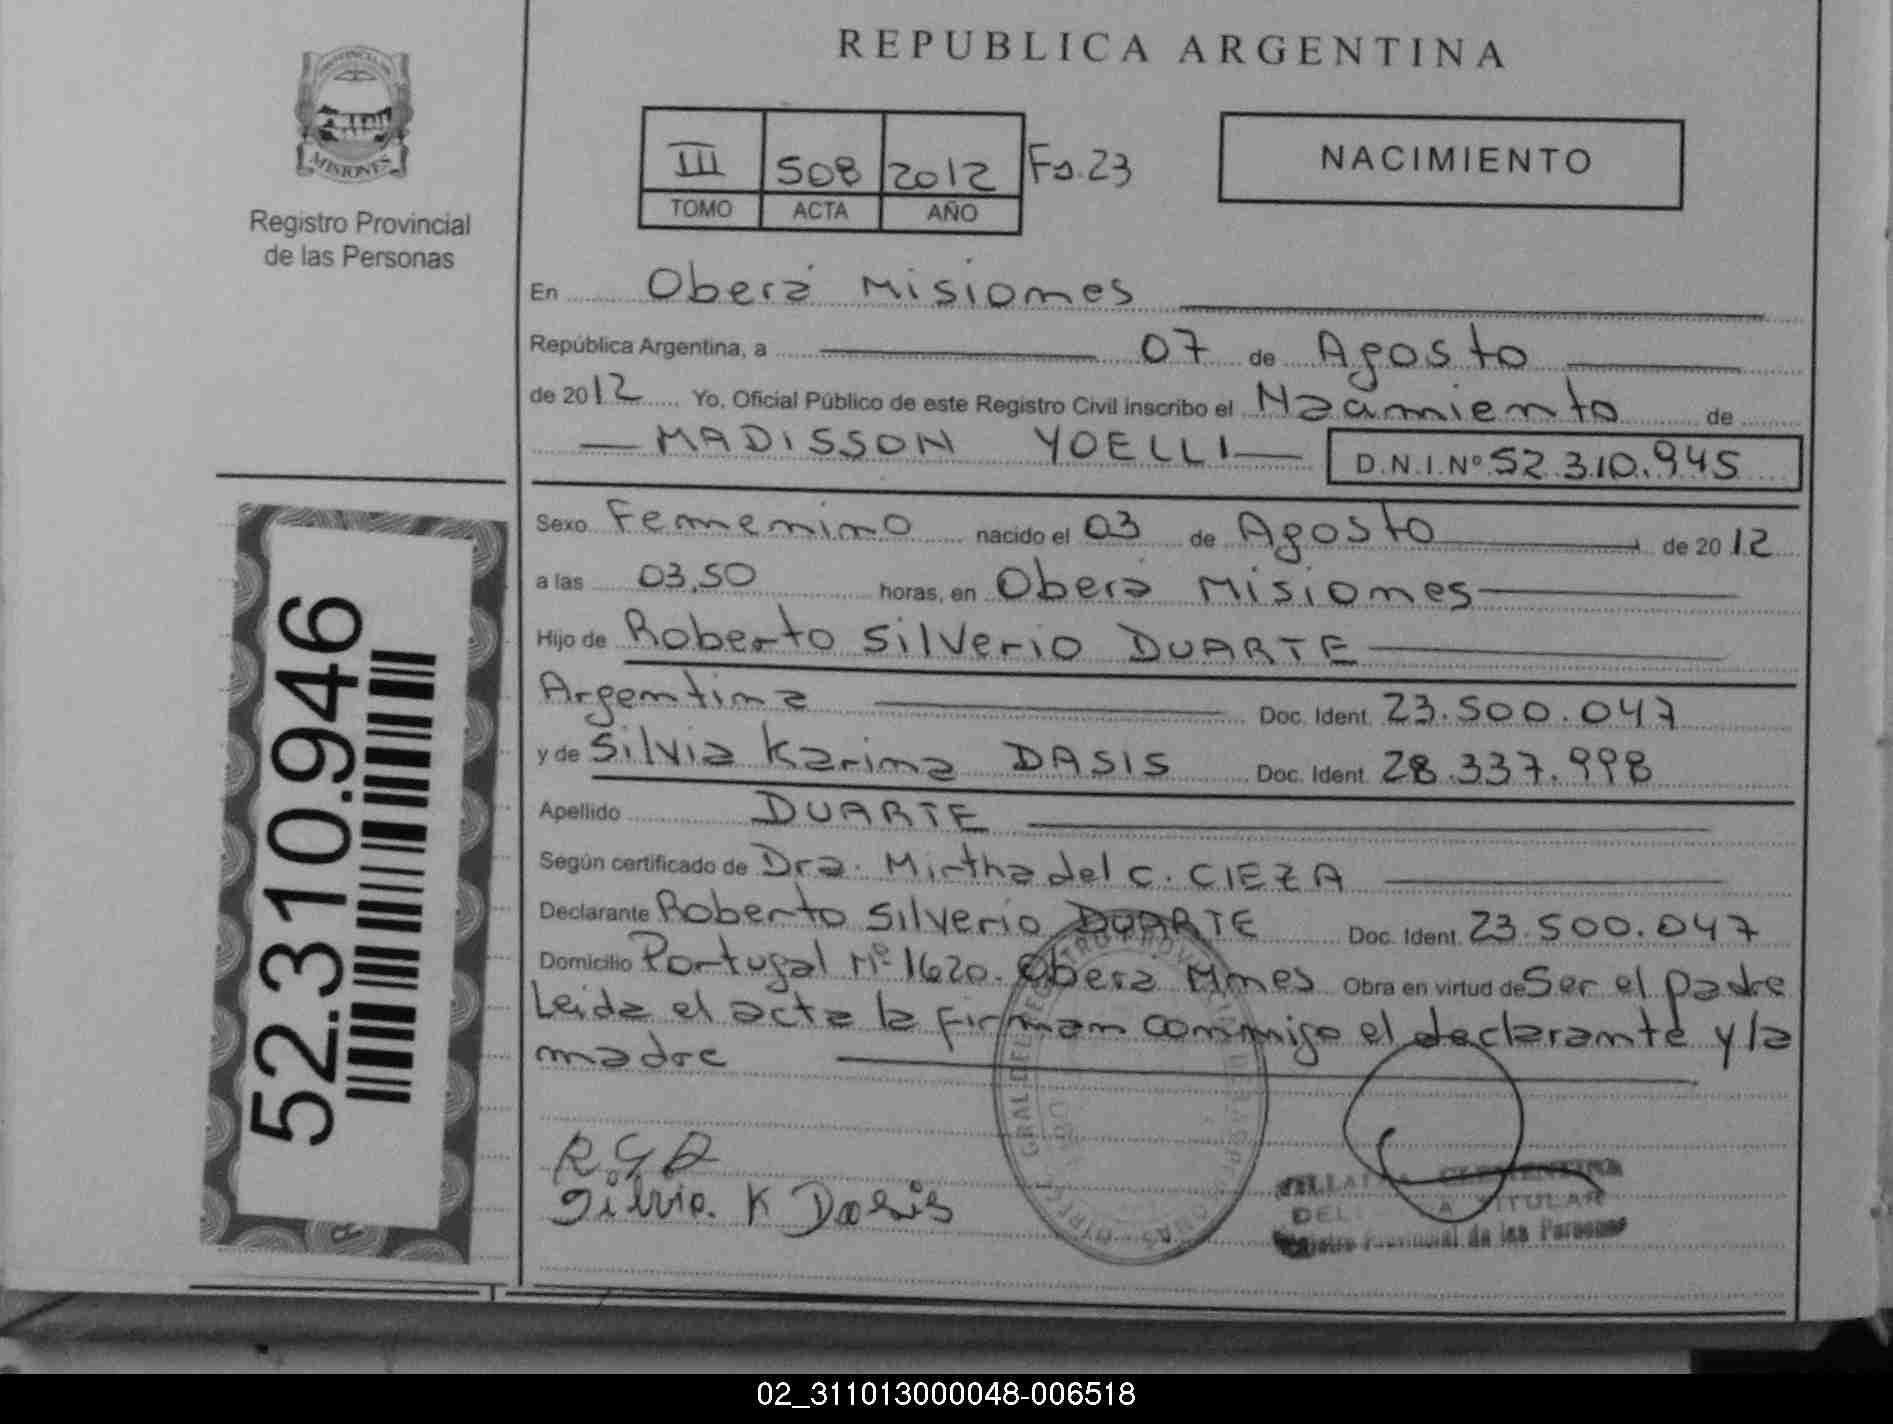 REPUBLICA ARGENTINA
PROVINCIA DE
MISIONES
Registro Provincial
de las Personas
III 508 2012 Fs.23
TOMO ACTA AÑO
NACIMIENTO
En Oberá Misiones
República Argentina, a 07 de Agosto
de 2012 Yo, Oficial Público de este Registro Civil inscribo el Nacimiento de
MADISSON YOELLI D.N.I.Nº 52.310.945
Sexo Femenino nacido el 03 de Agosto de 2012
a las 03,50 horas, en Oberá Misiones
Hijo de Roberto Silverio DUARTE
Argentina Doc. Ident. 23.500.047
y de Silvia Karina DASIS Doc. Ident. 28.337.998
Apellido DUARTE
Según certificado de Dra. Mirtha del C. CIEZA
Declarante Roberto Silverio DUARTE Doc. Ident. 23.500.047
Domicilio Portugal Nº 1620. Obera Mnes Obra en virtud de Ser el padre
Leida el acta la firman conmigo el declarante y la
madre
52.310.946
Silvia. K Dasis
CLEMENTINA
TITULAR
Registro Provincial de las Personas
02_311013000048-006518